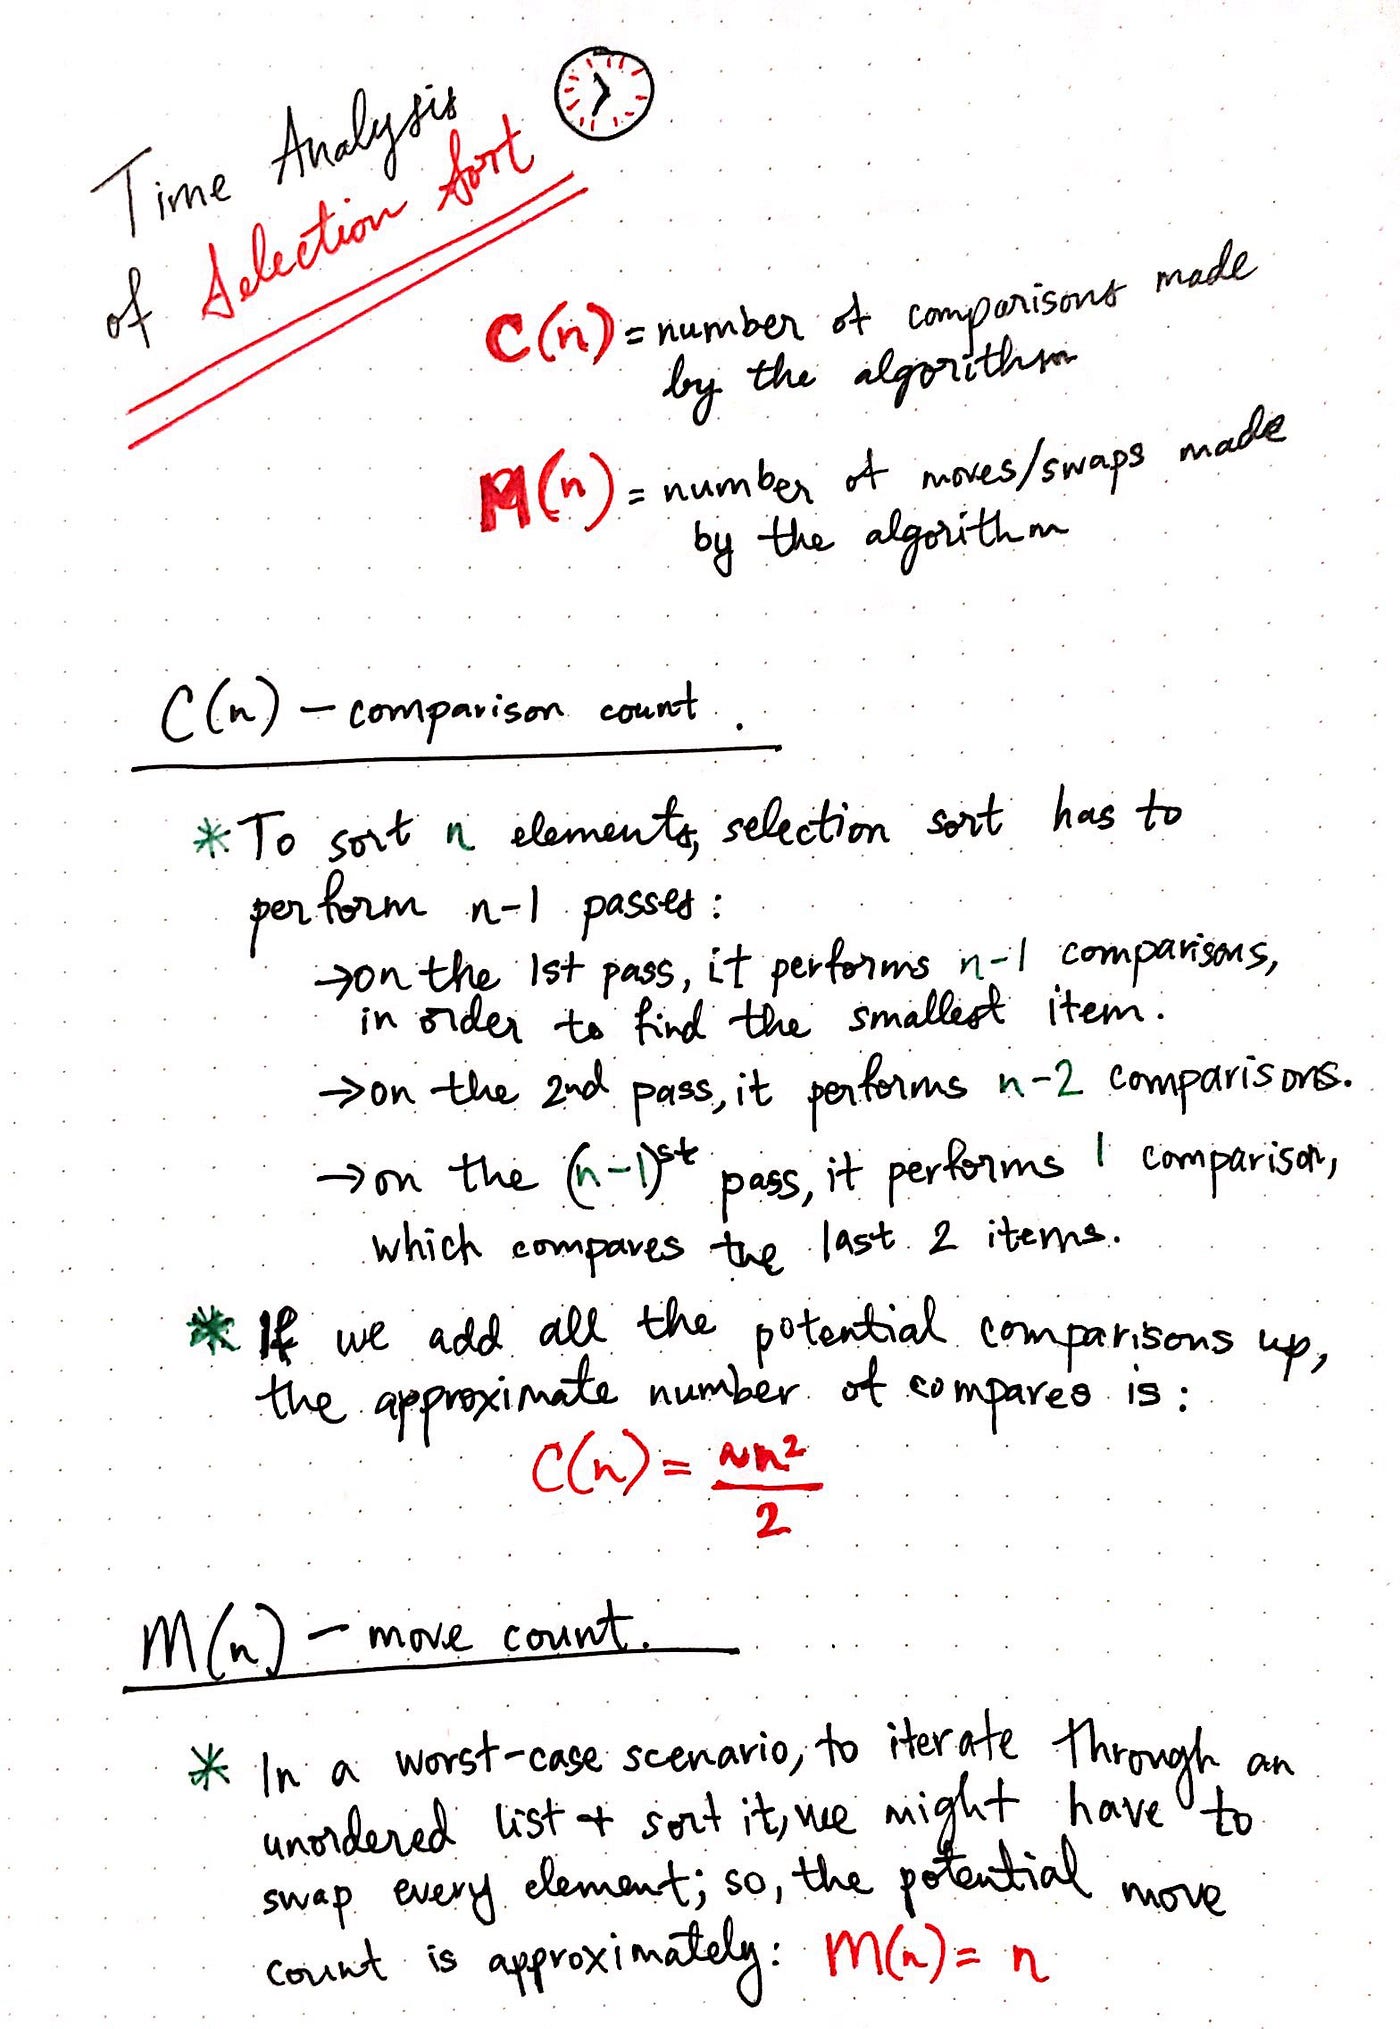 Time Analysis
of Selection Sort
C(n) = number of comparisons made
by the algorithm
M(n) = number of moves/swaps made
by the algorithm
C(n) – comparison count.
* To sort n elements, selection sort has to
perform n-1 passes:
→ on the 1st pass, it performs n-1 comparisons,
in order to find the smallest item.
→ on the 2nd pass, it performs n-2 comparisons.
→ on the (n-1)st pass, it performs 1 comparison,
which compares the last 2 items.
* If we add all the potential comparisons up,
the approximate number of compares is:
C(n) = ~n²/2
M(n) – move count.
* In a worst-case scenario, to iterate through an
unordered list + sort it, we might have to
swap every element; so, the potential move
count is approximately: M(n) = n